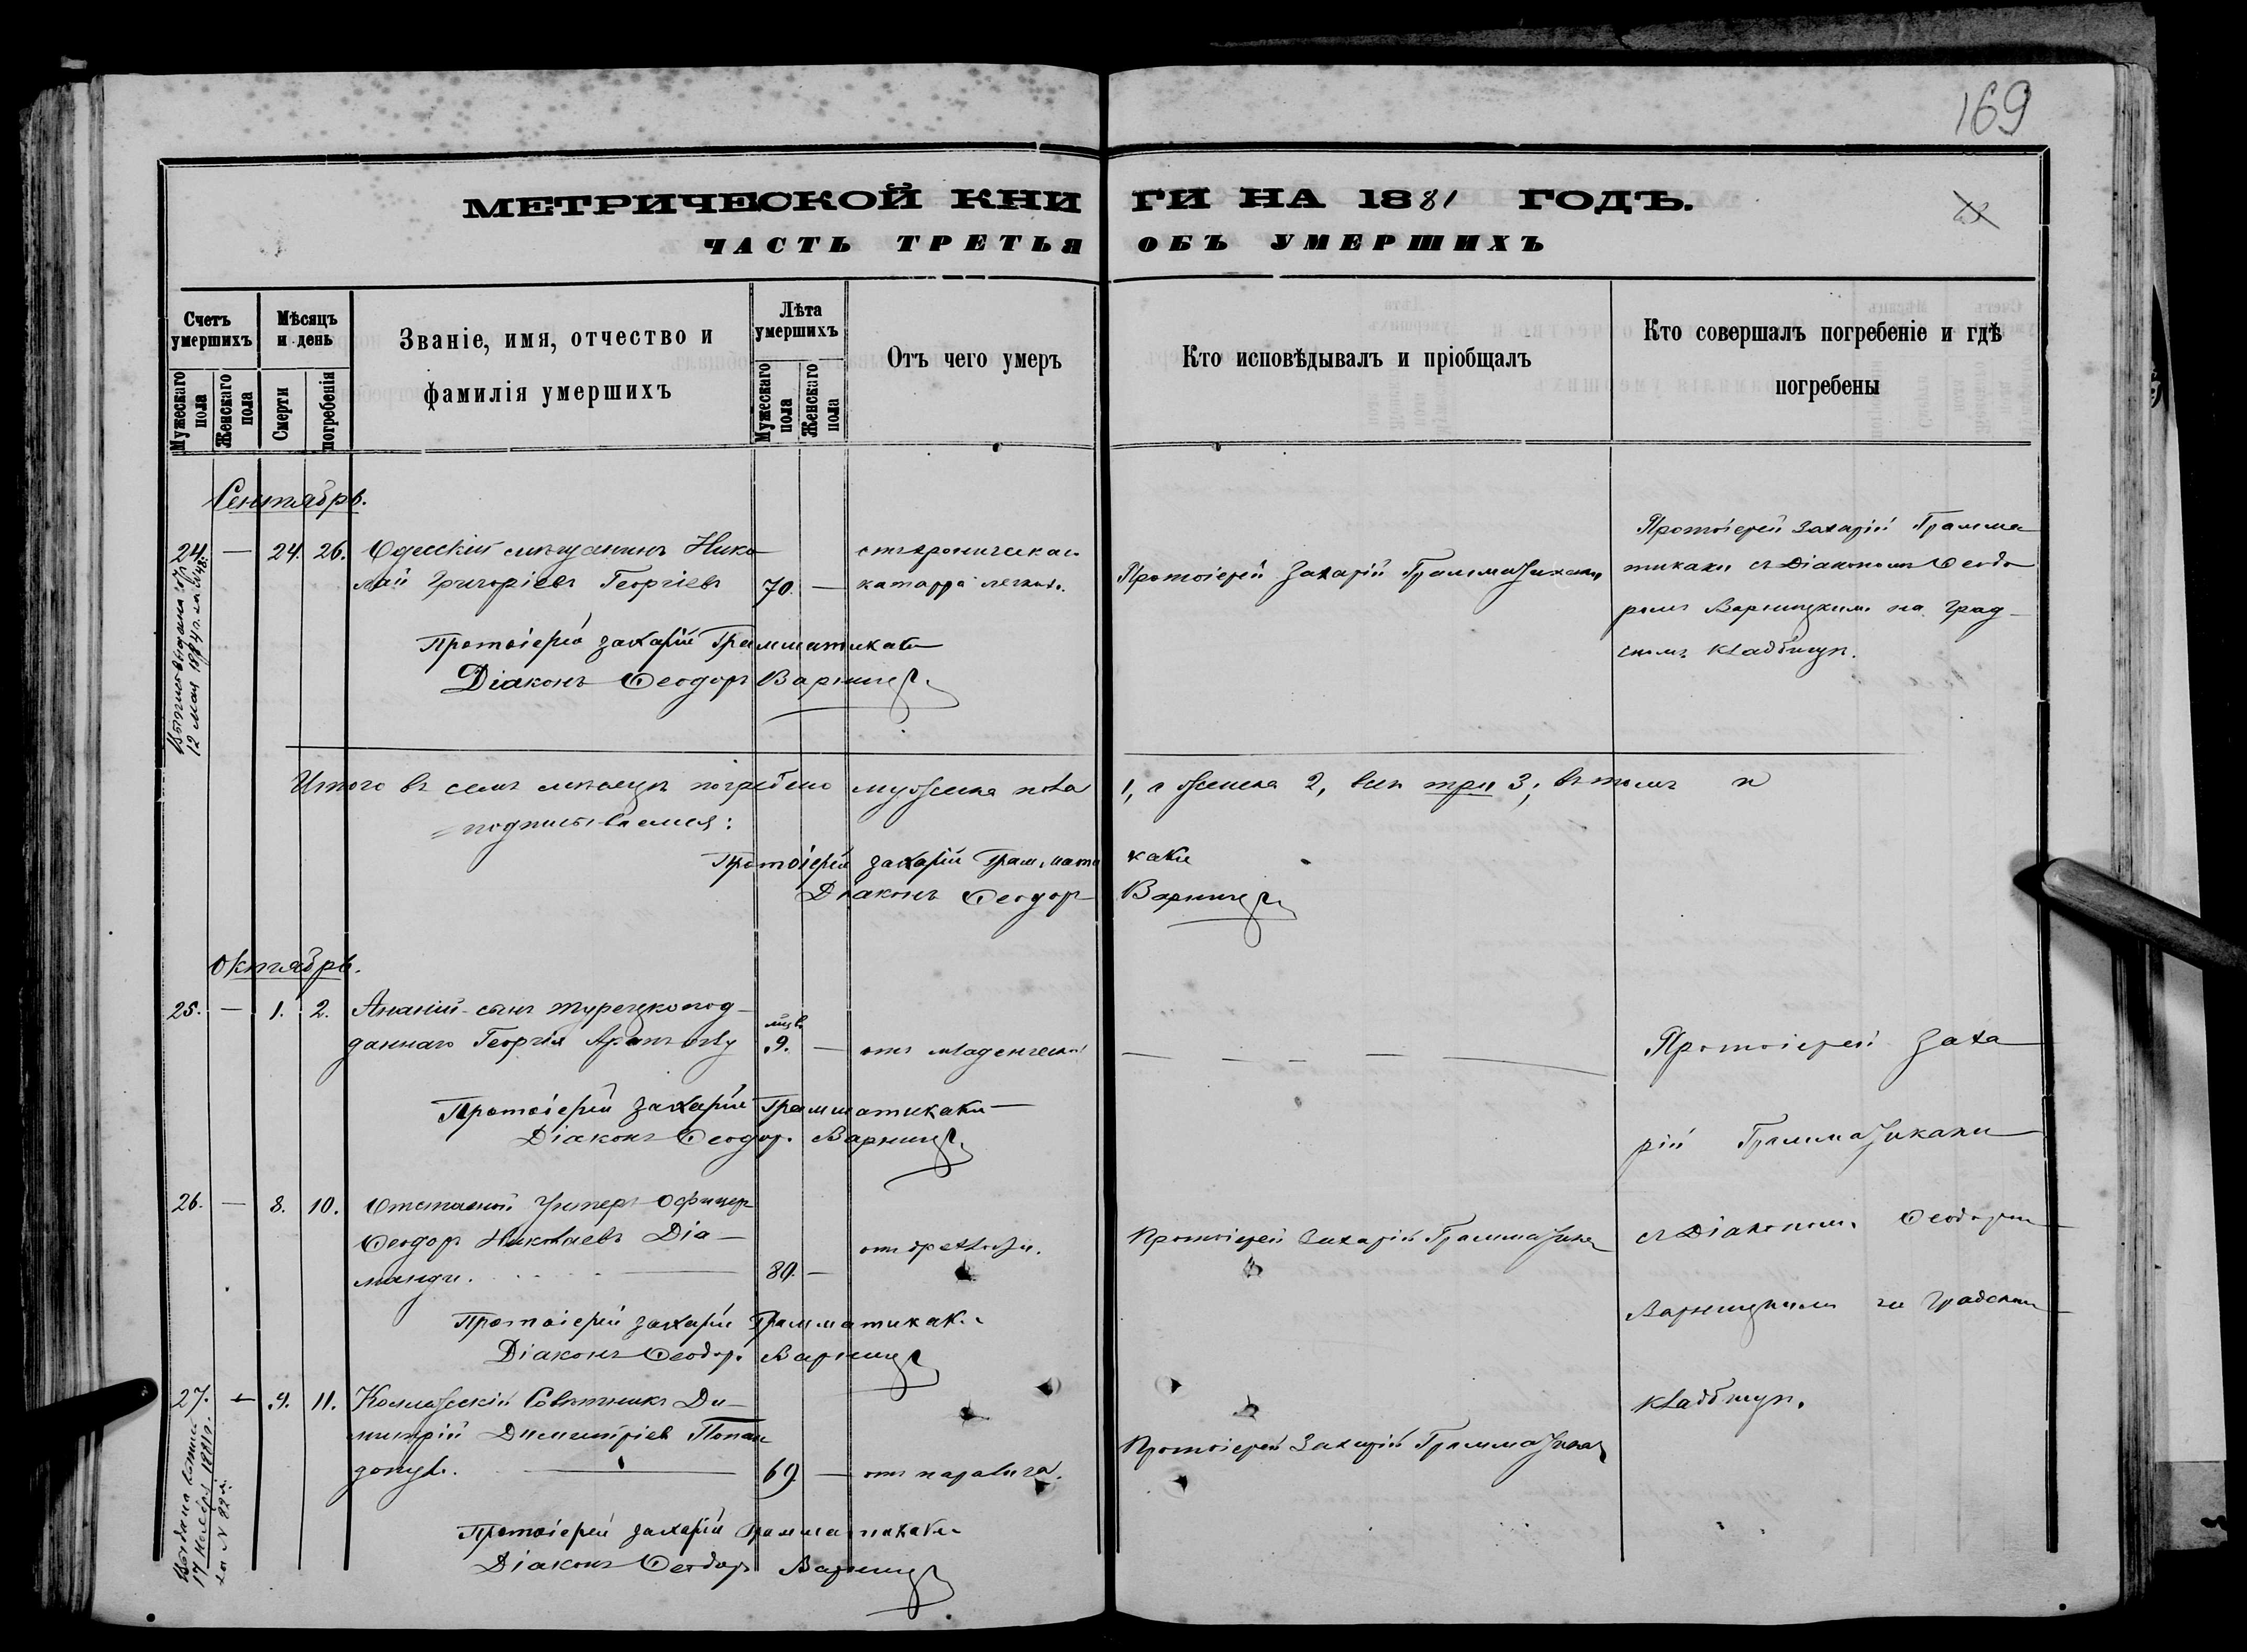 169
МЕТРИЧЕСКОЙ КНИ ГИ НА 1881 ГОДЪ.
ЧАСТЬ ТРЕТЬЯ ОБЪ УМЕРШИХЪ
Счетъ умершихъ
Мужескаго пола
Женскаго пола
Мѣсяцъ и день
Смерти
погребенія
Званіе, имя, отчество и
фамилія умершихъ
Лѣта умершихъ
Мужескаго пола
Женскаго пола
Отъ чего умеръ
Кто исповѣдывалъ и пріобщалъ
Кто совершалъ погребеніе и гдѣ
погребены
Сентябрь.
24. — 24. 26. Одесскій мѣщанинъ Нико
лай Григоріевъ Георгіевъ 70. —
отъ хроническаго
катарра легкихъ.
Протоіерей Захарій Грамматикаки
Протоіерей Захарій Грамма
тикаки съ Діакономъ Ѳеодо
ромъ Варницкимъ на град
скомъ кладбищѣ.
Протоіерей Захарій Грамматикаки
Діаконъ Ѳеодоръ Варницкій
12 мая 1884 г. за № 48.
Итого въ семъ мѣсяцѣ погребено мужеска пола 1, а женска 2, всѣхъ три 3; въ томъ и
подписываемся:
Протоіерей Захарій Граммати каки
Діаконъ Ѳеодоръ Варницкій
Октябрь.
25. — 1. 2. Ананій сынъ турецкопод
даннаго Георгія
мѣс.
9. — отъ младенческой
— — — —
Протоіерей Заха
рій Грамматикаки
съ Діакономъ Ѳеодоромъ
Варницкимъ на градскомъ
кладбищѣ.
Протоіерей Захарій Грамматикаки
Діаконъ Ѳеодоръ Варницкій
26. — 8. 10. Отставной Унтеръ Офицеръ
Ѳеодоръ Николаевъ Діа
манди. 80. —
отъ дряхлости.
Протоіерей Захарій Грамматикаки
Протоіерей Захарій Грамматикаки
Діаконъ Ѳеодоръ Варницкій
27. — 9. 11. Коллежскій Совѣтникъ Ди
митрій Димитріевъ Попан
допуло. 69. — отъ паралича.
Протоіерей Захарій Грамматикаки
Протоіерей Захарій Грамматикаки
Діаконъ Ѳеодоръ Варницкій
17 Ноября 1881 г.
за № 82 м.